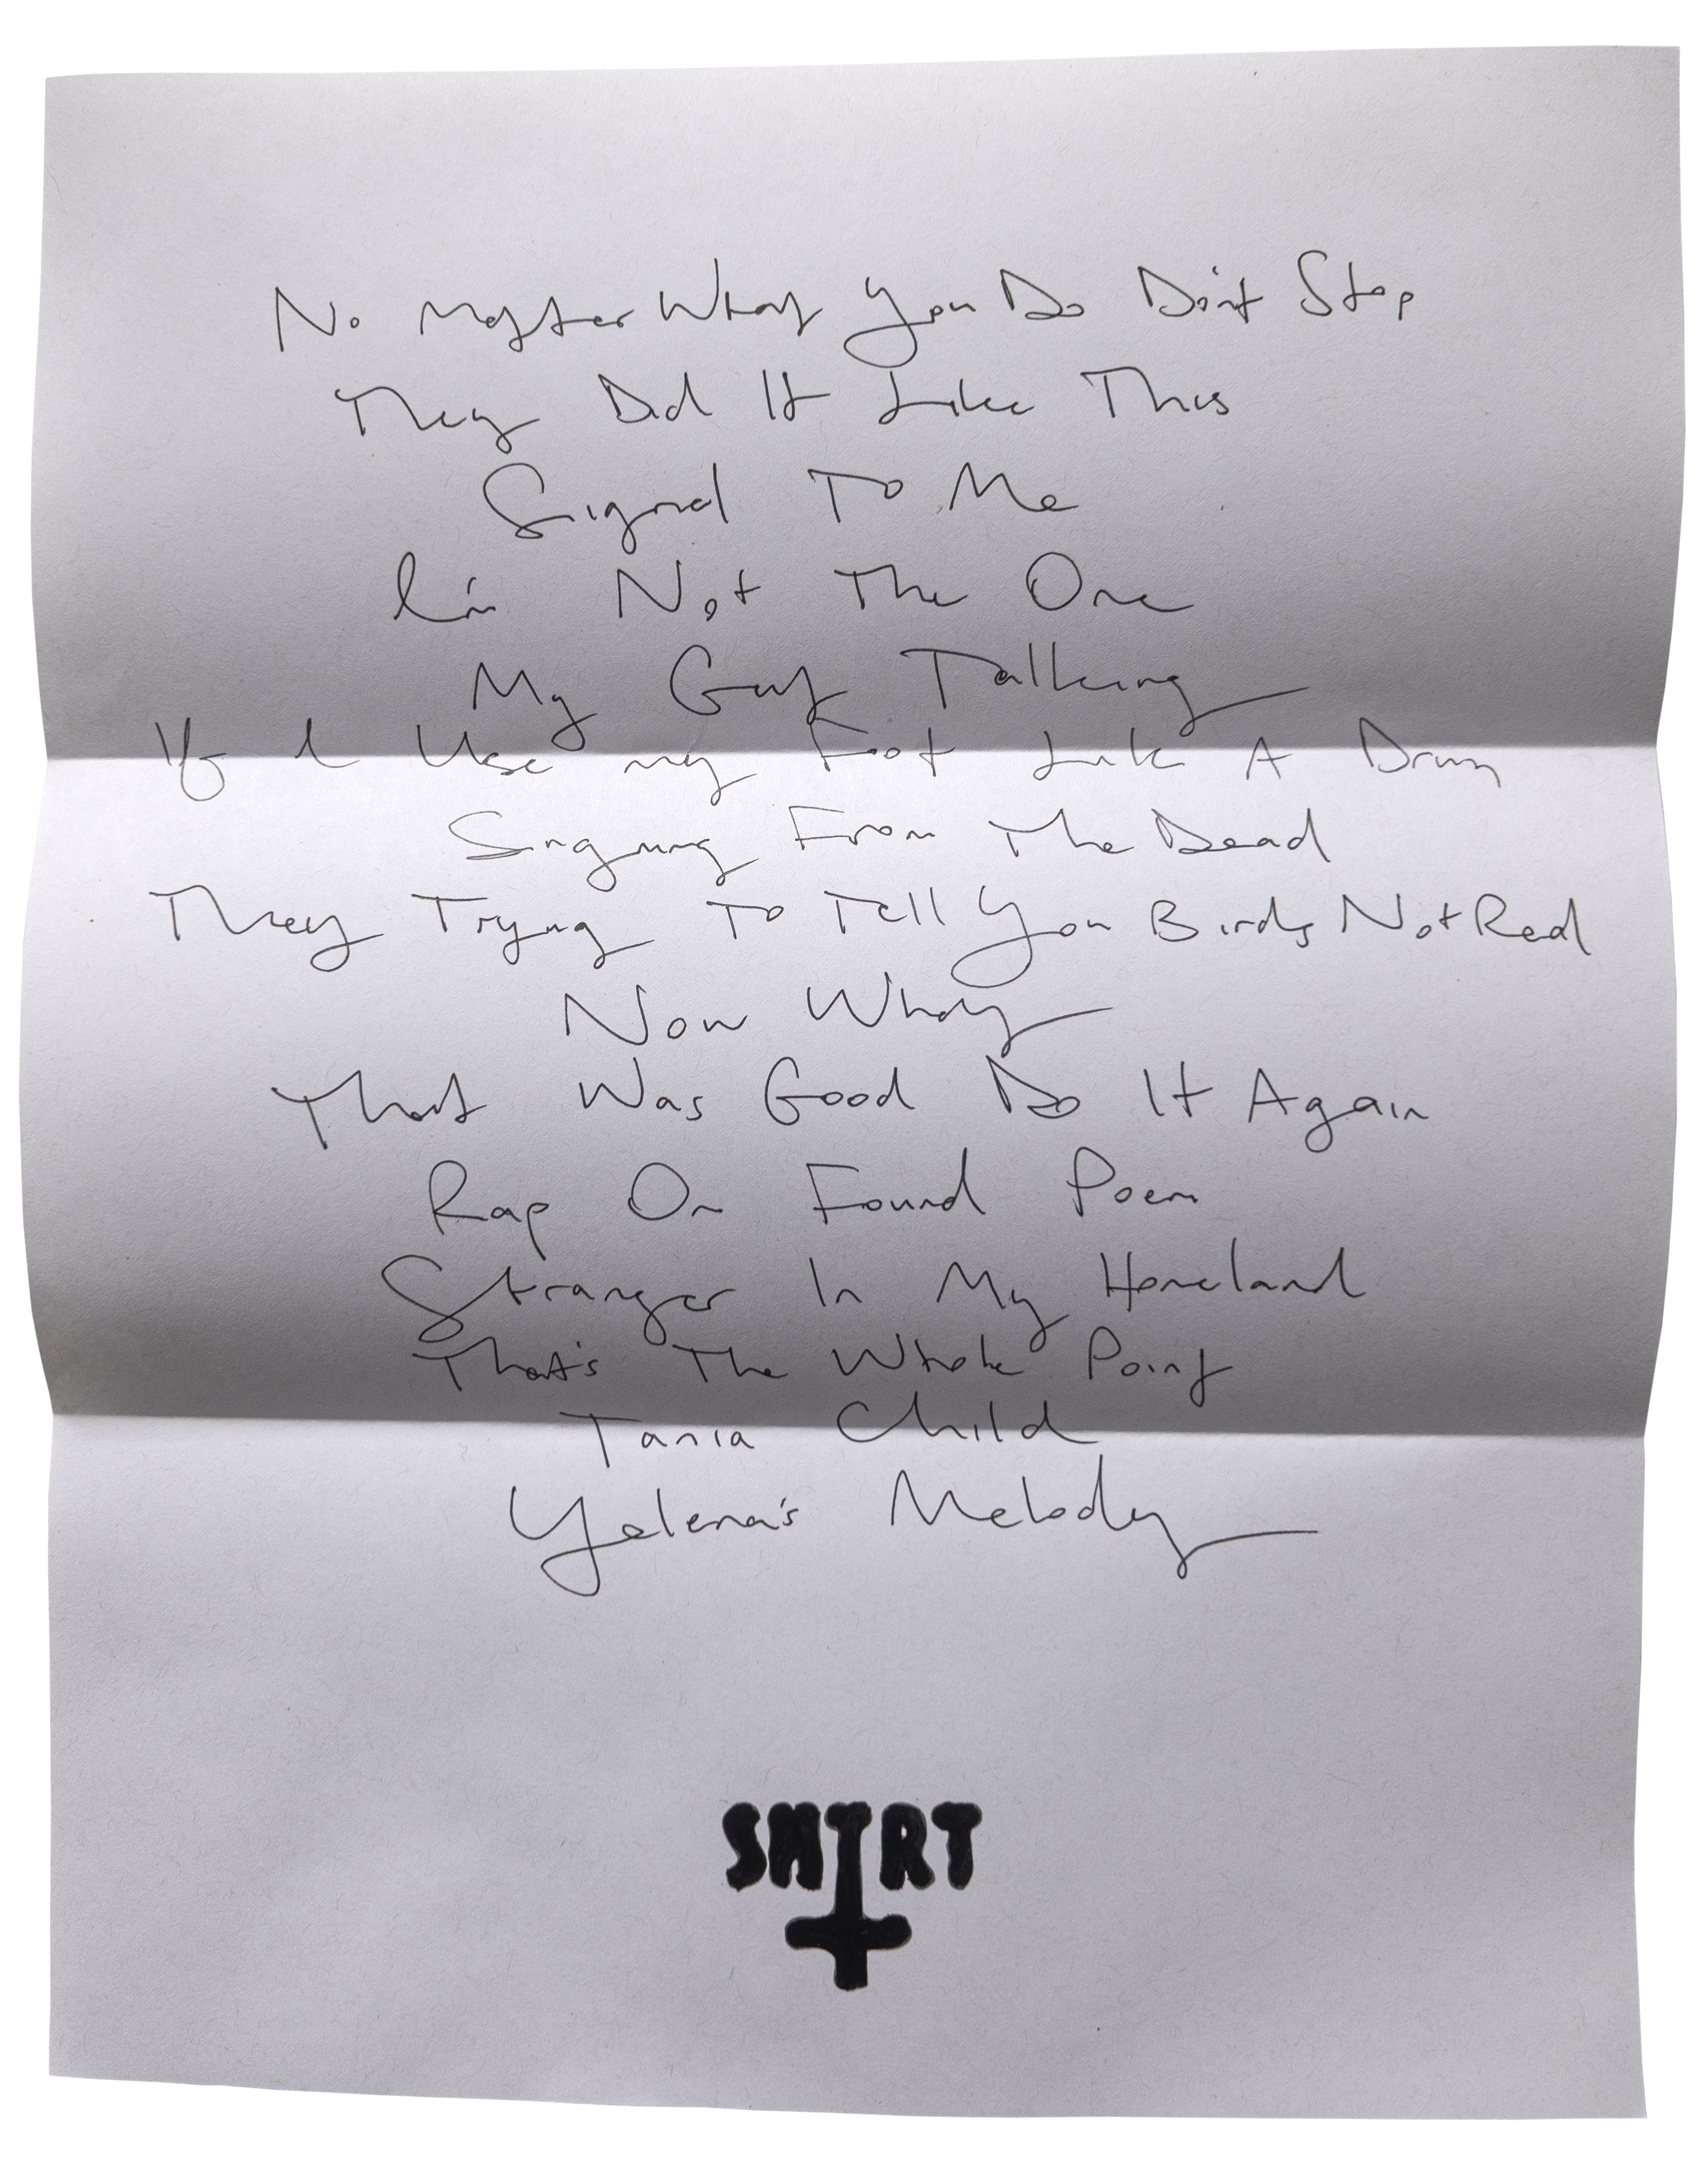 No Matter What You Do Don't Stop
They Did It Like This
Signed To Me
I'm Not The One
My Guy Talking
If I Use my Foot Like A Drum
Singing From The Dead
They Trying To Tell You Birds Not Real
Now What
That Was Good Do It Again
Rap On Found Poem
Stranger In My Homeland
That's The Whole Point
Tania Child
Yelena's Melody
SHIRT